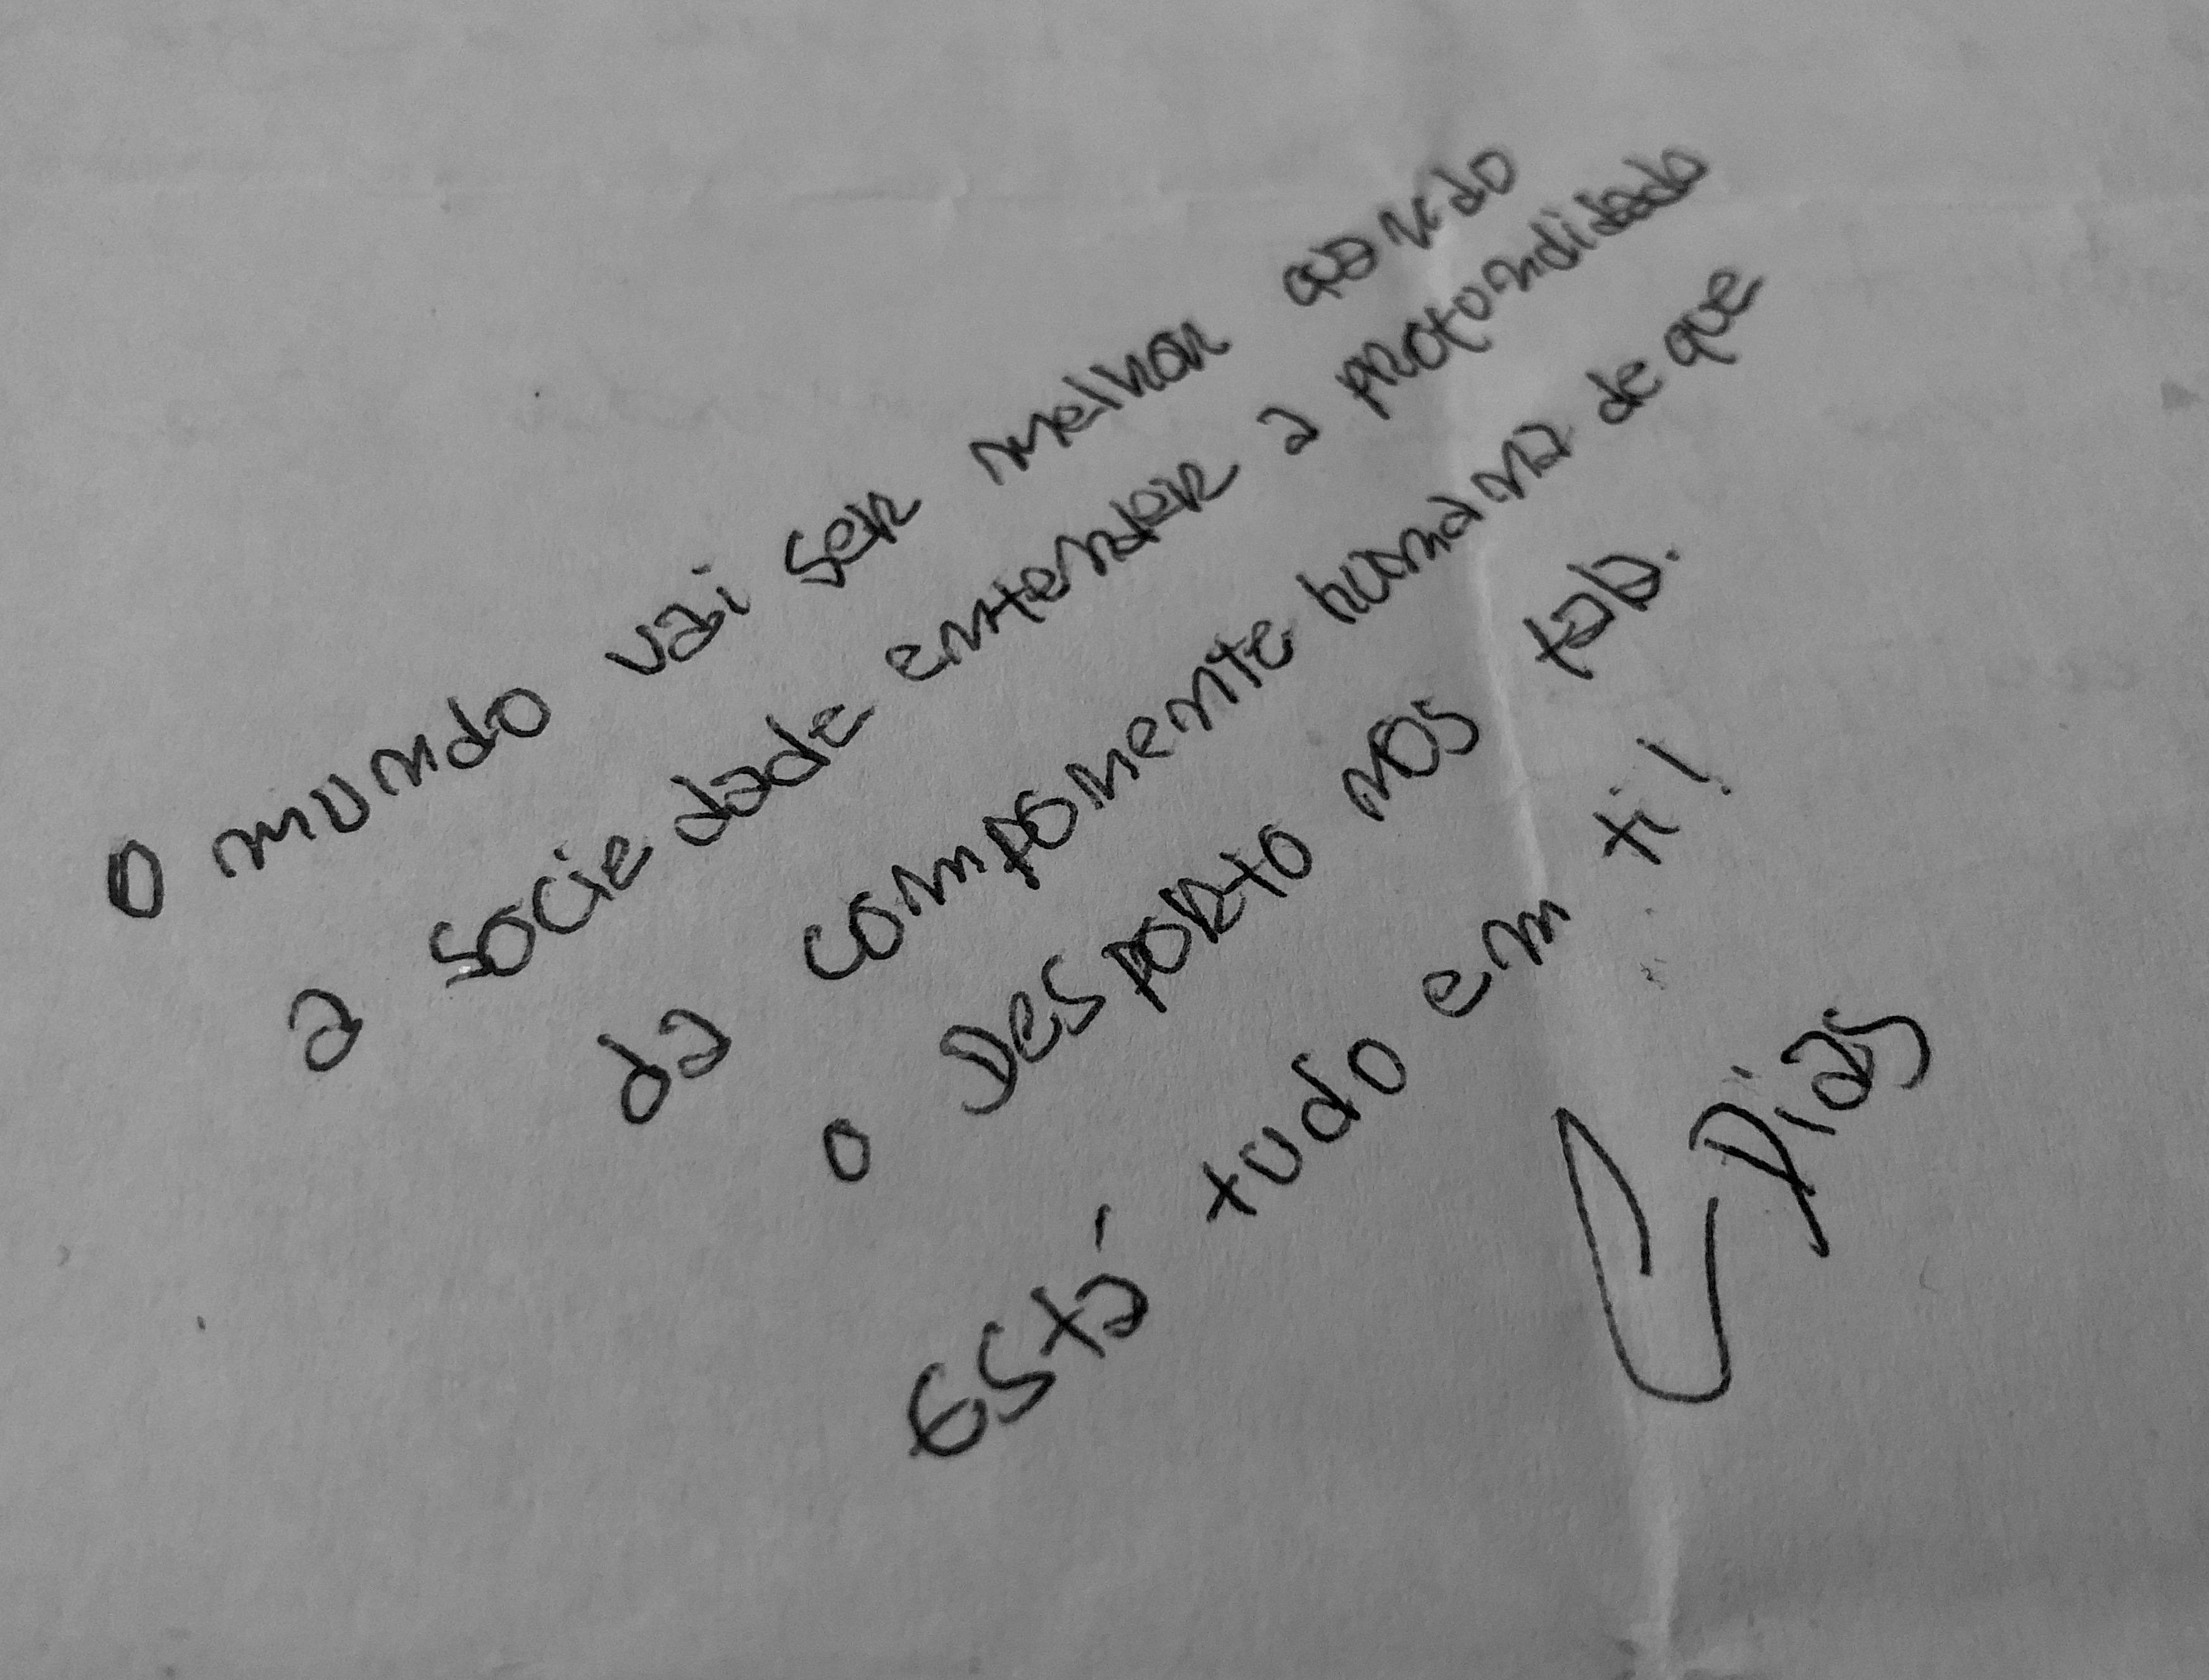 O mundo vai ser melhor quando
a sociedade entender a profundidade
da componente humana de que
o Desporto nos fala.
Está tudo em ti!
Dias